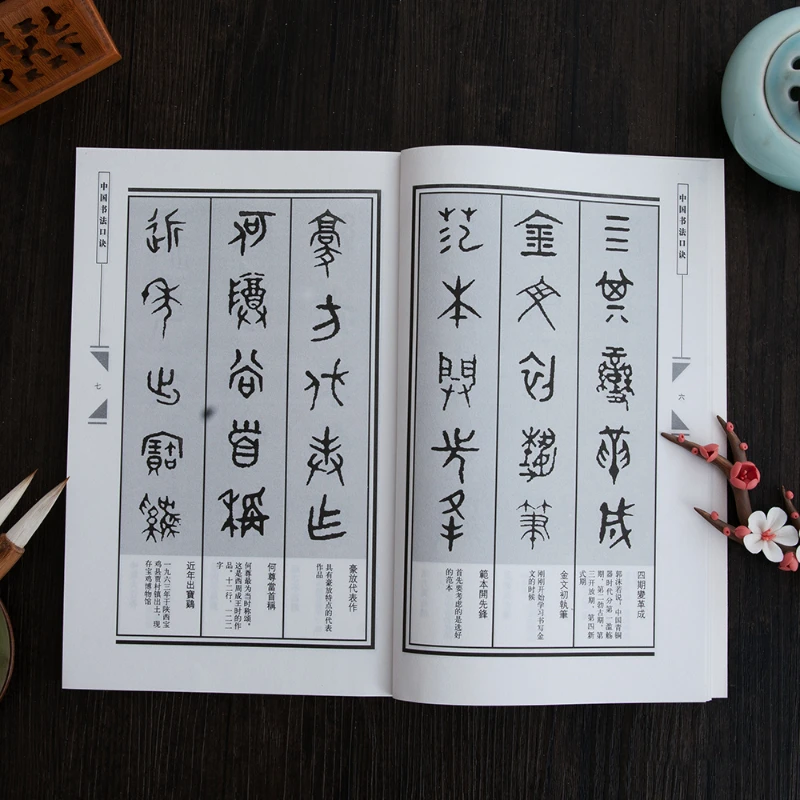 中国书法口诀
六
四期變革成
四期變革成
郭沫若说，中国青铜
器时代分第一滥觞
期，第二勃古期，第
三开放期，第四新
式期
金文初執筆
金文初執筆
刚刚开始学习书写金
文的时候
範本開先鋒
範本開先鋒
首先要考虑的是选好
的范本
豪放代表作
豪放代表作
具有豪放特点的代表
作品
何尊當首稱
何尊當首稱
何尊最为当时称颂。
这是西周成王时的作
品。十二行，一二二
字
近年出寶鷄
近年出寶鷄
一九六三年于陕西宝
鸡县贾村镇出土。现
存宝鸡博物馆
中国书法口诀
七